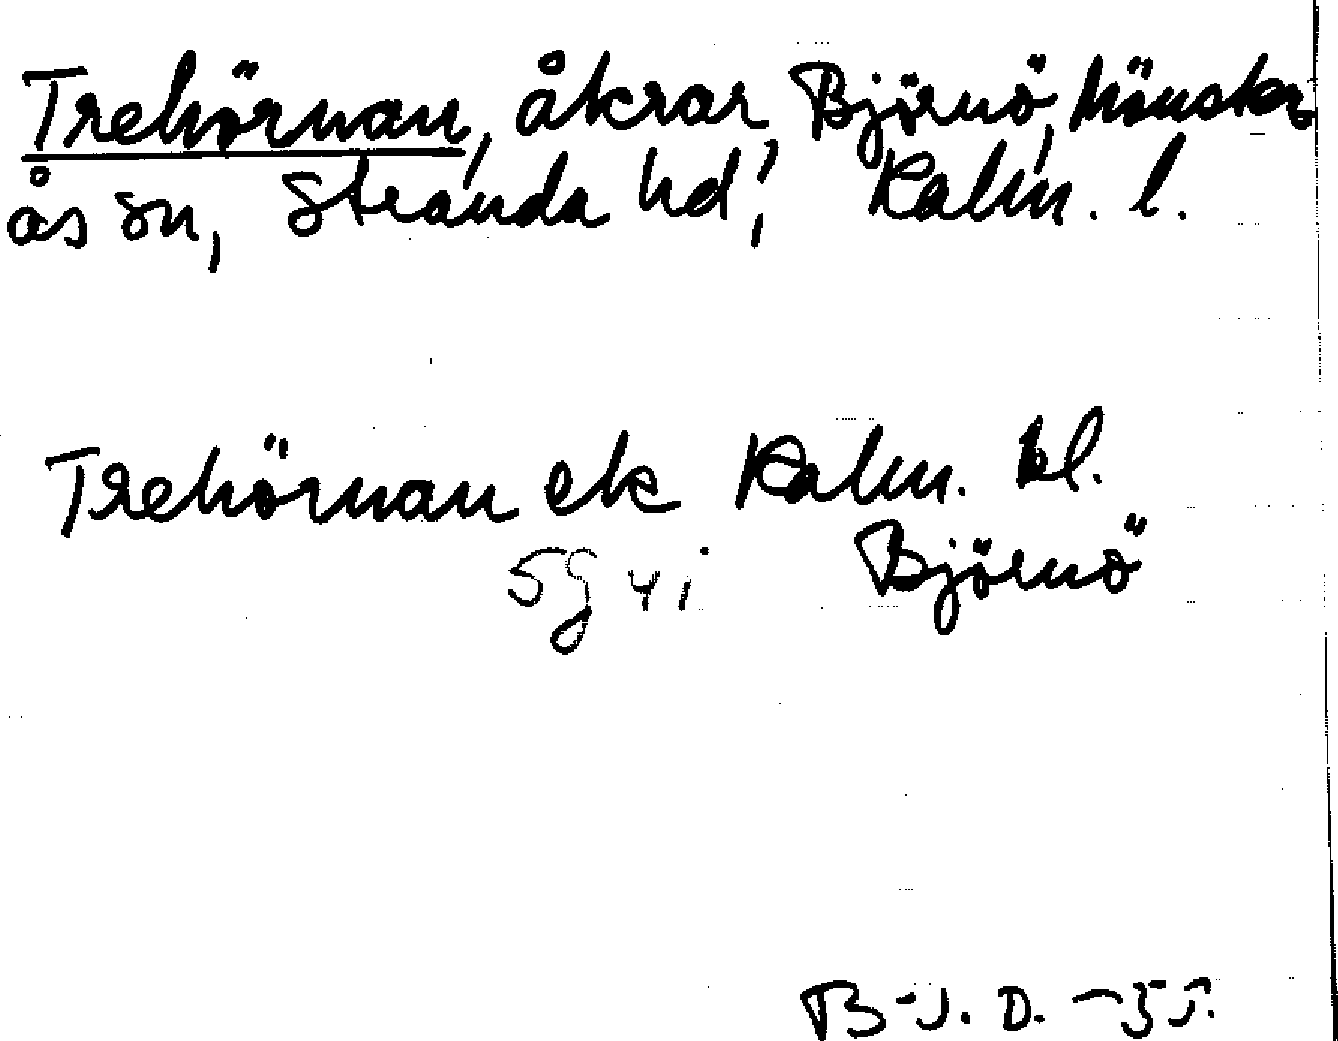 Trehörnan, åkrar, Björnö, Mönster-
ås sn, Stranda hd, Kalm. l.
Trehörnan ek Kalm. kl.
5g 4i Björnö
B-J. D. -55.